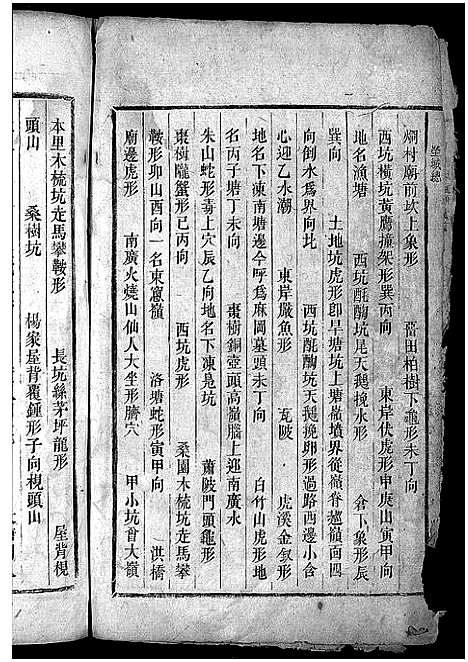 烱村廟前坎上象形　　萏田柏樹下龜形未丁向
西坑橫坑黃鷹撞架形巽向　　東岸伏虎形申庚山寅甲向
地名漁塘　　西坑酕酶坑尾天鵝挽水形　　倉下象形辰
巽向　　土地坑虎形卽旱塘坑上塘嶺墳界從嶺脊趂嶺南四
向倒水爲界向比　　西坑酕酶坑天鵝挽卵形過路西邊小含
心迎乙水潮　　東岸嚴魚形　　瓦陂　　虎溪金釵形
地名下凍南塘邊今呼爲麻岡墓頭未丁向　　白竹山虎形地
名丙子塘丁未向　　棗樹銅壺頭高嶺腦上迎南廣水
朱山蛇形毒上穴辰乙向地名下凍是坑　　蕭陂門頭龜形
棗樹隴蟹形巳丙向　　西坑虎形　　桑園木梳坑走馬攀
鞍形卯山酉向一名東窻嶺　　洛塘蛇形寅甲向　　洪橋
廟邊虎形　　南廣火燒山仙人大坐形臍穴　　甲小坑首大嶺
本里木梳坑走馬攀鞍形　　長坑絲茅坪龍形　　屋背梘
頭山　　桑樹坑　　楊家屋背覆鍾形子向梘頭山